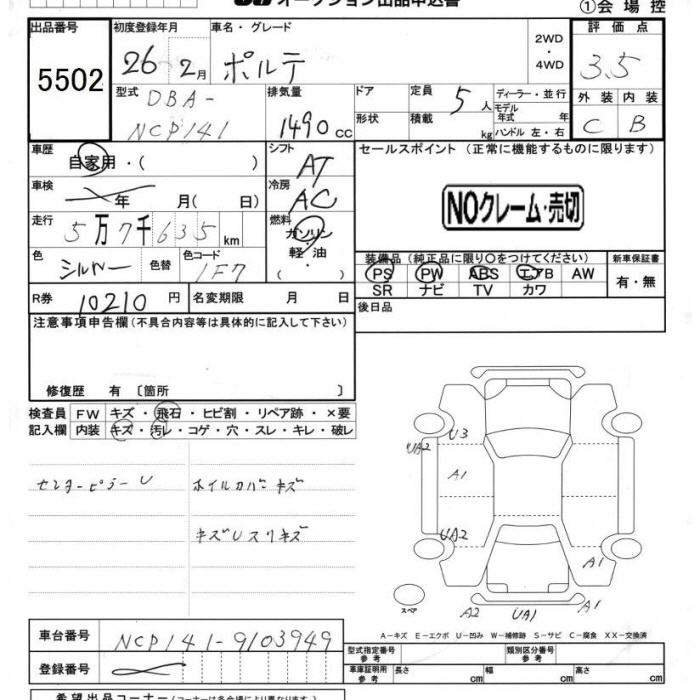 オークション出品申込書
①会場控
出品番号 初度登録年月 車名・グレード 評価点
5502
26年 2月 ポルテ
2WD
・
4WD
3.5
型式 DBA-
NCP141
排気量
1490 cc
ドア 定員 5人
形状 積載 kg
ディーラー・並行
モデル年式 年
ハンドル 左・右
外装 内装
C B
車歴 自家用・( )
シフト AT
セールスポイント (正常に機能するものに限ります)
車検 年 月( 日)
冷房 AC
NOクレーム・売切
走行 5万7千635km
燃料 ガソリン
軽・油
・( )
色 シルバー 色替 色コード 1F7
装備品(純正品に限り○をつけてください) 新車保証書
PS PW ABS エアB AW
SR ナビ TV カワ
有・無
R券 10210円 名変期限 月 日
後日品
注意事項申告欄(不具合内容等は具体的に記入して下さい)
修復歴 有 〔箇所 〕
検査員 FW キズ・飛石・ヒビ割・リペア跡・×要
記入欄 内装 キズ・汚レ・コゲ・穴・スレ・キレ・破レ
センターピラーU ホイルカバーキズ
キズUスリキズ
U3
UA2
A1
UA2
A1
A2 UA1 A1
スペア
A-キズ E-エクボ U-凹み W-補修跡 S-サビ C-腐食 XX-交換済
車台番号 NCP141-9103949
登録番号
型式指定番号
参考
類別区分番号
参考
車庫証明用
参考
長さ cm 幅 cm 高さ cm
希望出品コーナー(コーナーは各会場により異なります)